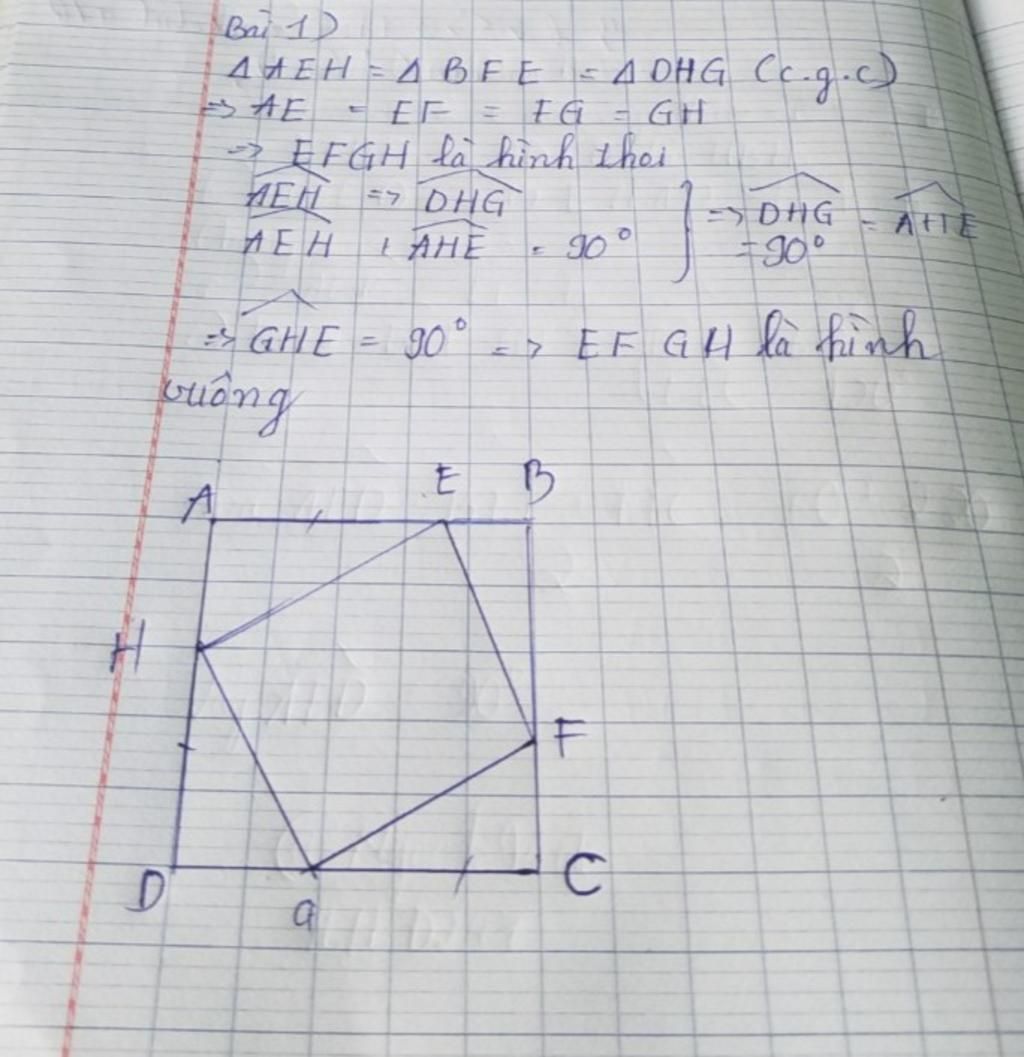 Bài 1)
Δ AEH = Δ BFE = Δ DHG (c.g.c)
=> AE = EF = FG = GH
=> EFGH là hình thoi
AEH => DHG
AEH + AHE = 90° } => DHG = AHE = 90°
=> GHE = 90° => EFGH là hình
vuông
A E B
H
F
D G C